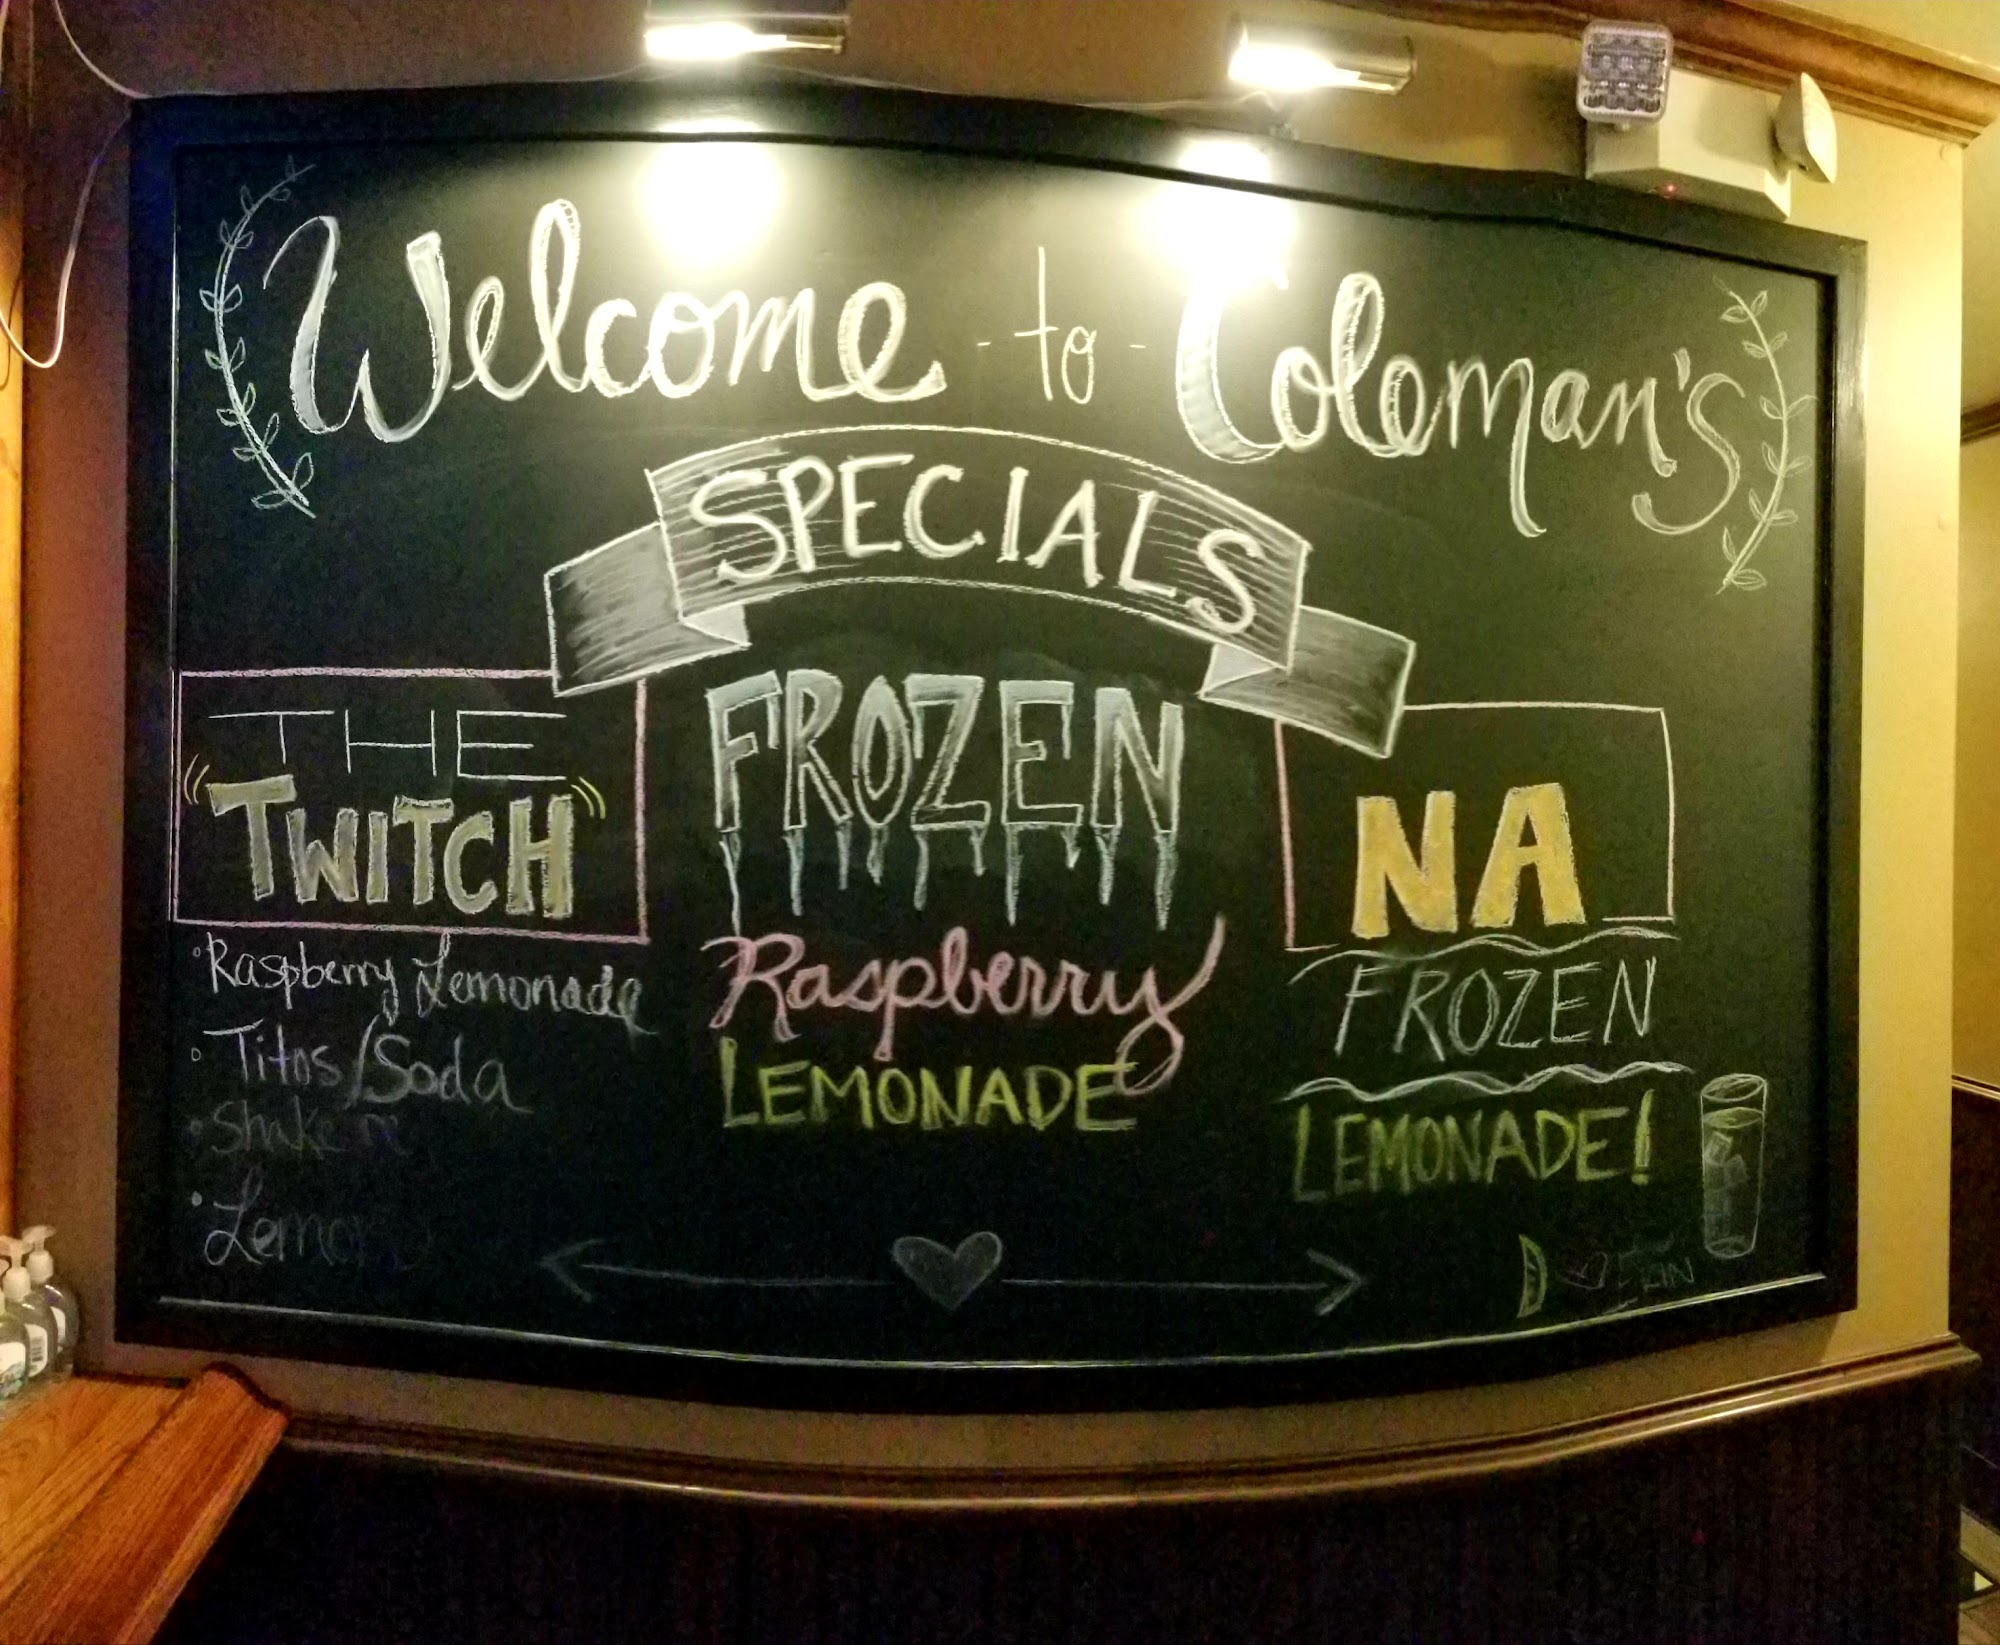 Welcome - to - Coleman's
SPECIALS
THE
TWITCH
• Raspberry Lemonade
• Titos/Soda
• Shake
FROZEN
Raspberry
LEMONADE
NA
FROZEN
LEMONADE!